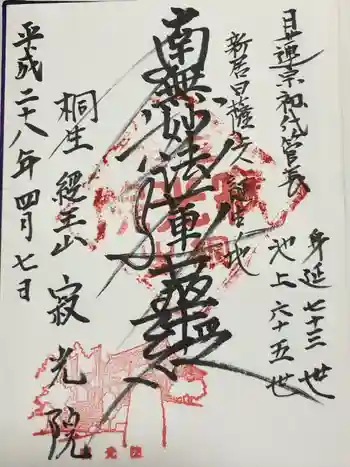 日蓮宗初代管長
身延 七十三世
池上 六十五世
新居日薩上人誕生之地
南無妙法蓮華経
桐生 経王山 寂光院
平成二十八年四月七日